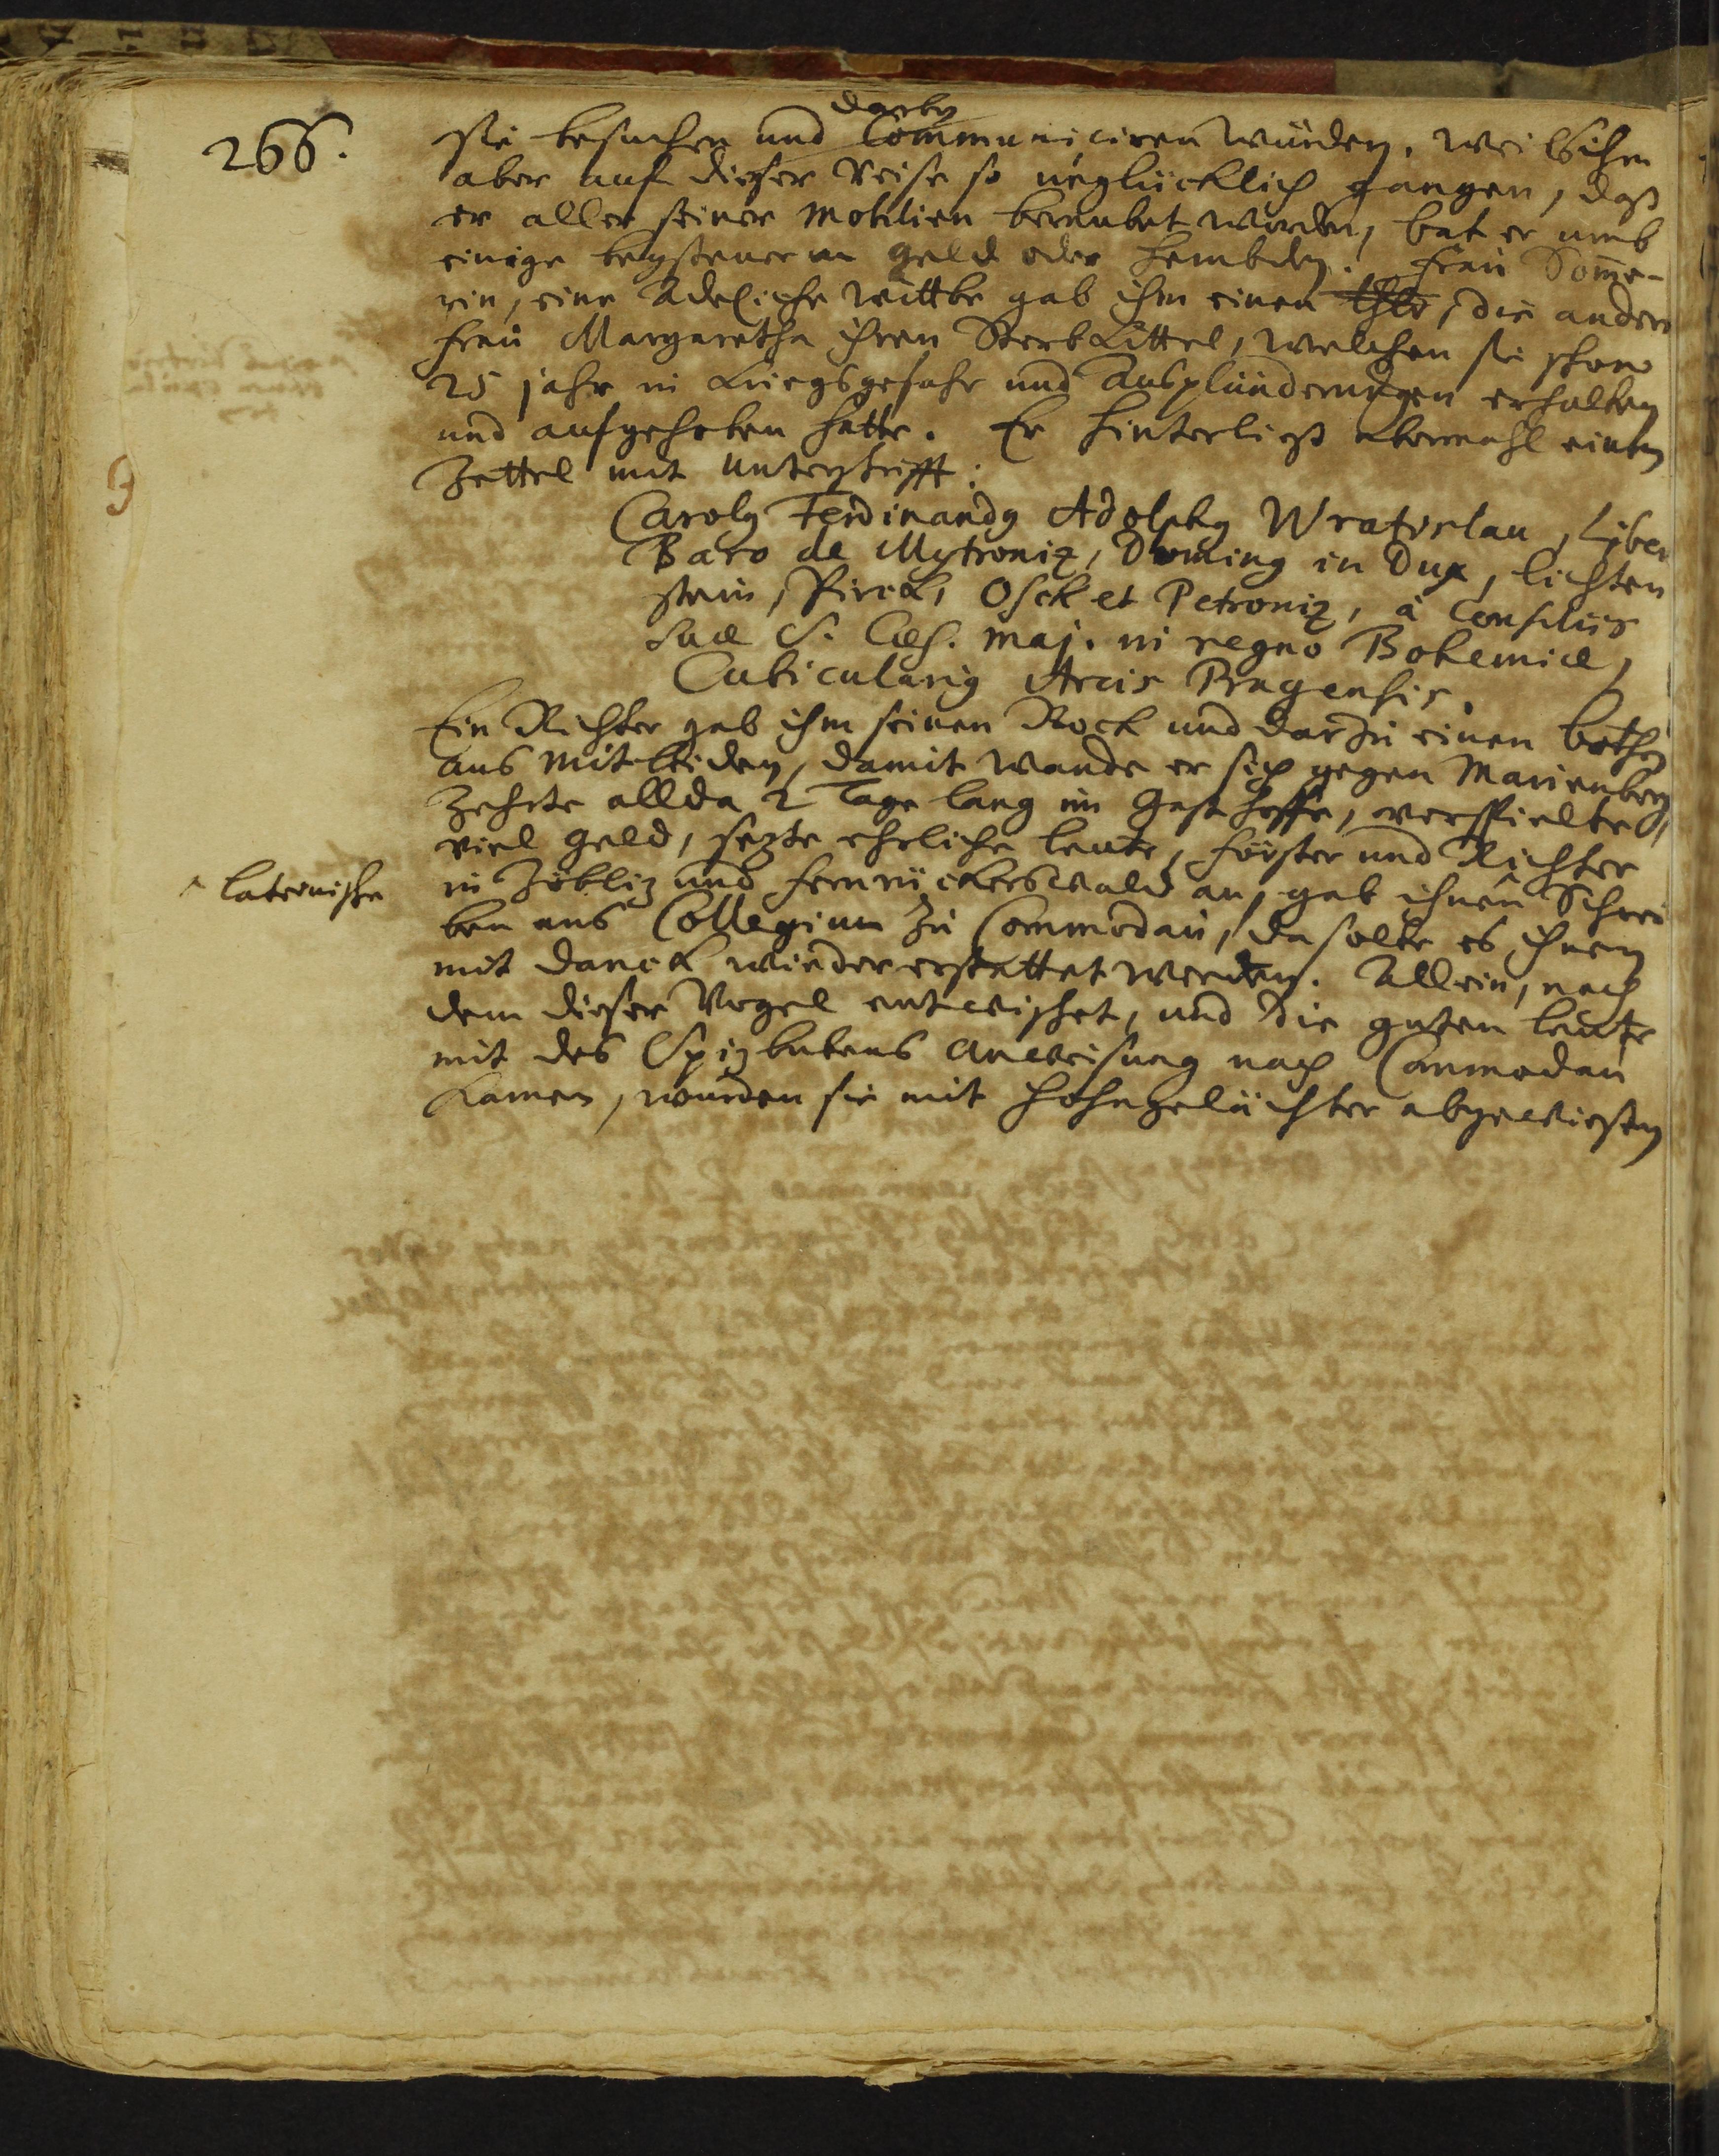 266.
darbey
sie besuchen und Communiciren würden. Weils ihm
aber auf dieser Reise so unglücklich gangen, daß
er aller seiner Mobilien beraubet worden, bat er umb
einige beysteuer an Geld oder Hembden. Frau Somme-
rin, eine Adeliche Wittbe gab ihm einen thlr, die andere
Frau Margaretha ihren Sterbkittel, welchen sie schon
25 jahr in Kriegsgefahr und Ausplünderungen erhalten
und aufgehoben hatte. Er hinterließ abermahl einen
Zettel mit Unterschrifft:
Carolus Ferdinandus Adolphus Wratislau, Liber
Baro de Mytroniz, Dominus in Dux, Lichten
stein, Pirck, Osek et Petroniz, à Consiliis
Suae S. Caes. Maj. in regno Bohemiae,
Cubicularius Arcis Pragensis.
Ein Richter gab ihm seinen Rock und darzu einen bothen
aus Mitleiden, damit wande er sich gegen Marienberg,
zehrte allda 2 Tage lang im Gasthoffe, verspielte
viel Geld, sezte ehrliche leute, Förster und Richter
in Zöbliz und Fernrückerswald an, gab ihnen Schrei
^ lateinische
ben ans Collegium zu Commodau, da solte es ihnen
mit Danck wiedererstattet werden. Allein, nach
dem dieser Vogel entwischet, und die guten leute
mit des Spizbubens Anweisung nach Commodau
kamen, wurden sie mit Hohngelächter abgewiesen